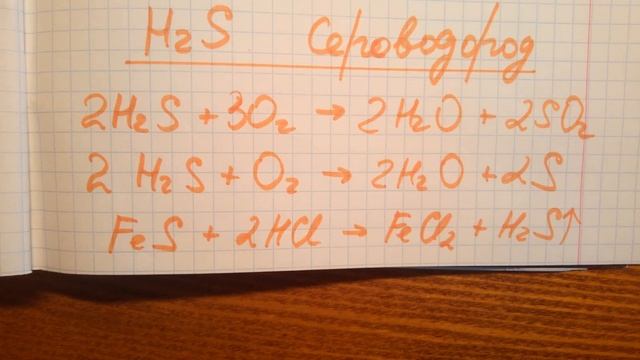 H₂S Сероводород
2H₂S + 3O₂ → 2H₂O + 2SO₂
2 H₂S + O₂ → 2H₂O + 2S
FeS + 2HCl → FeCl₂ + H₂S↑